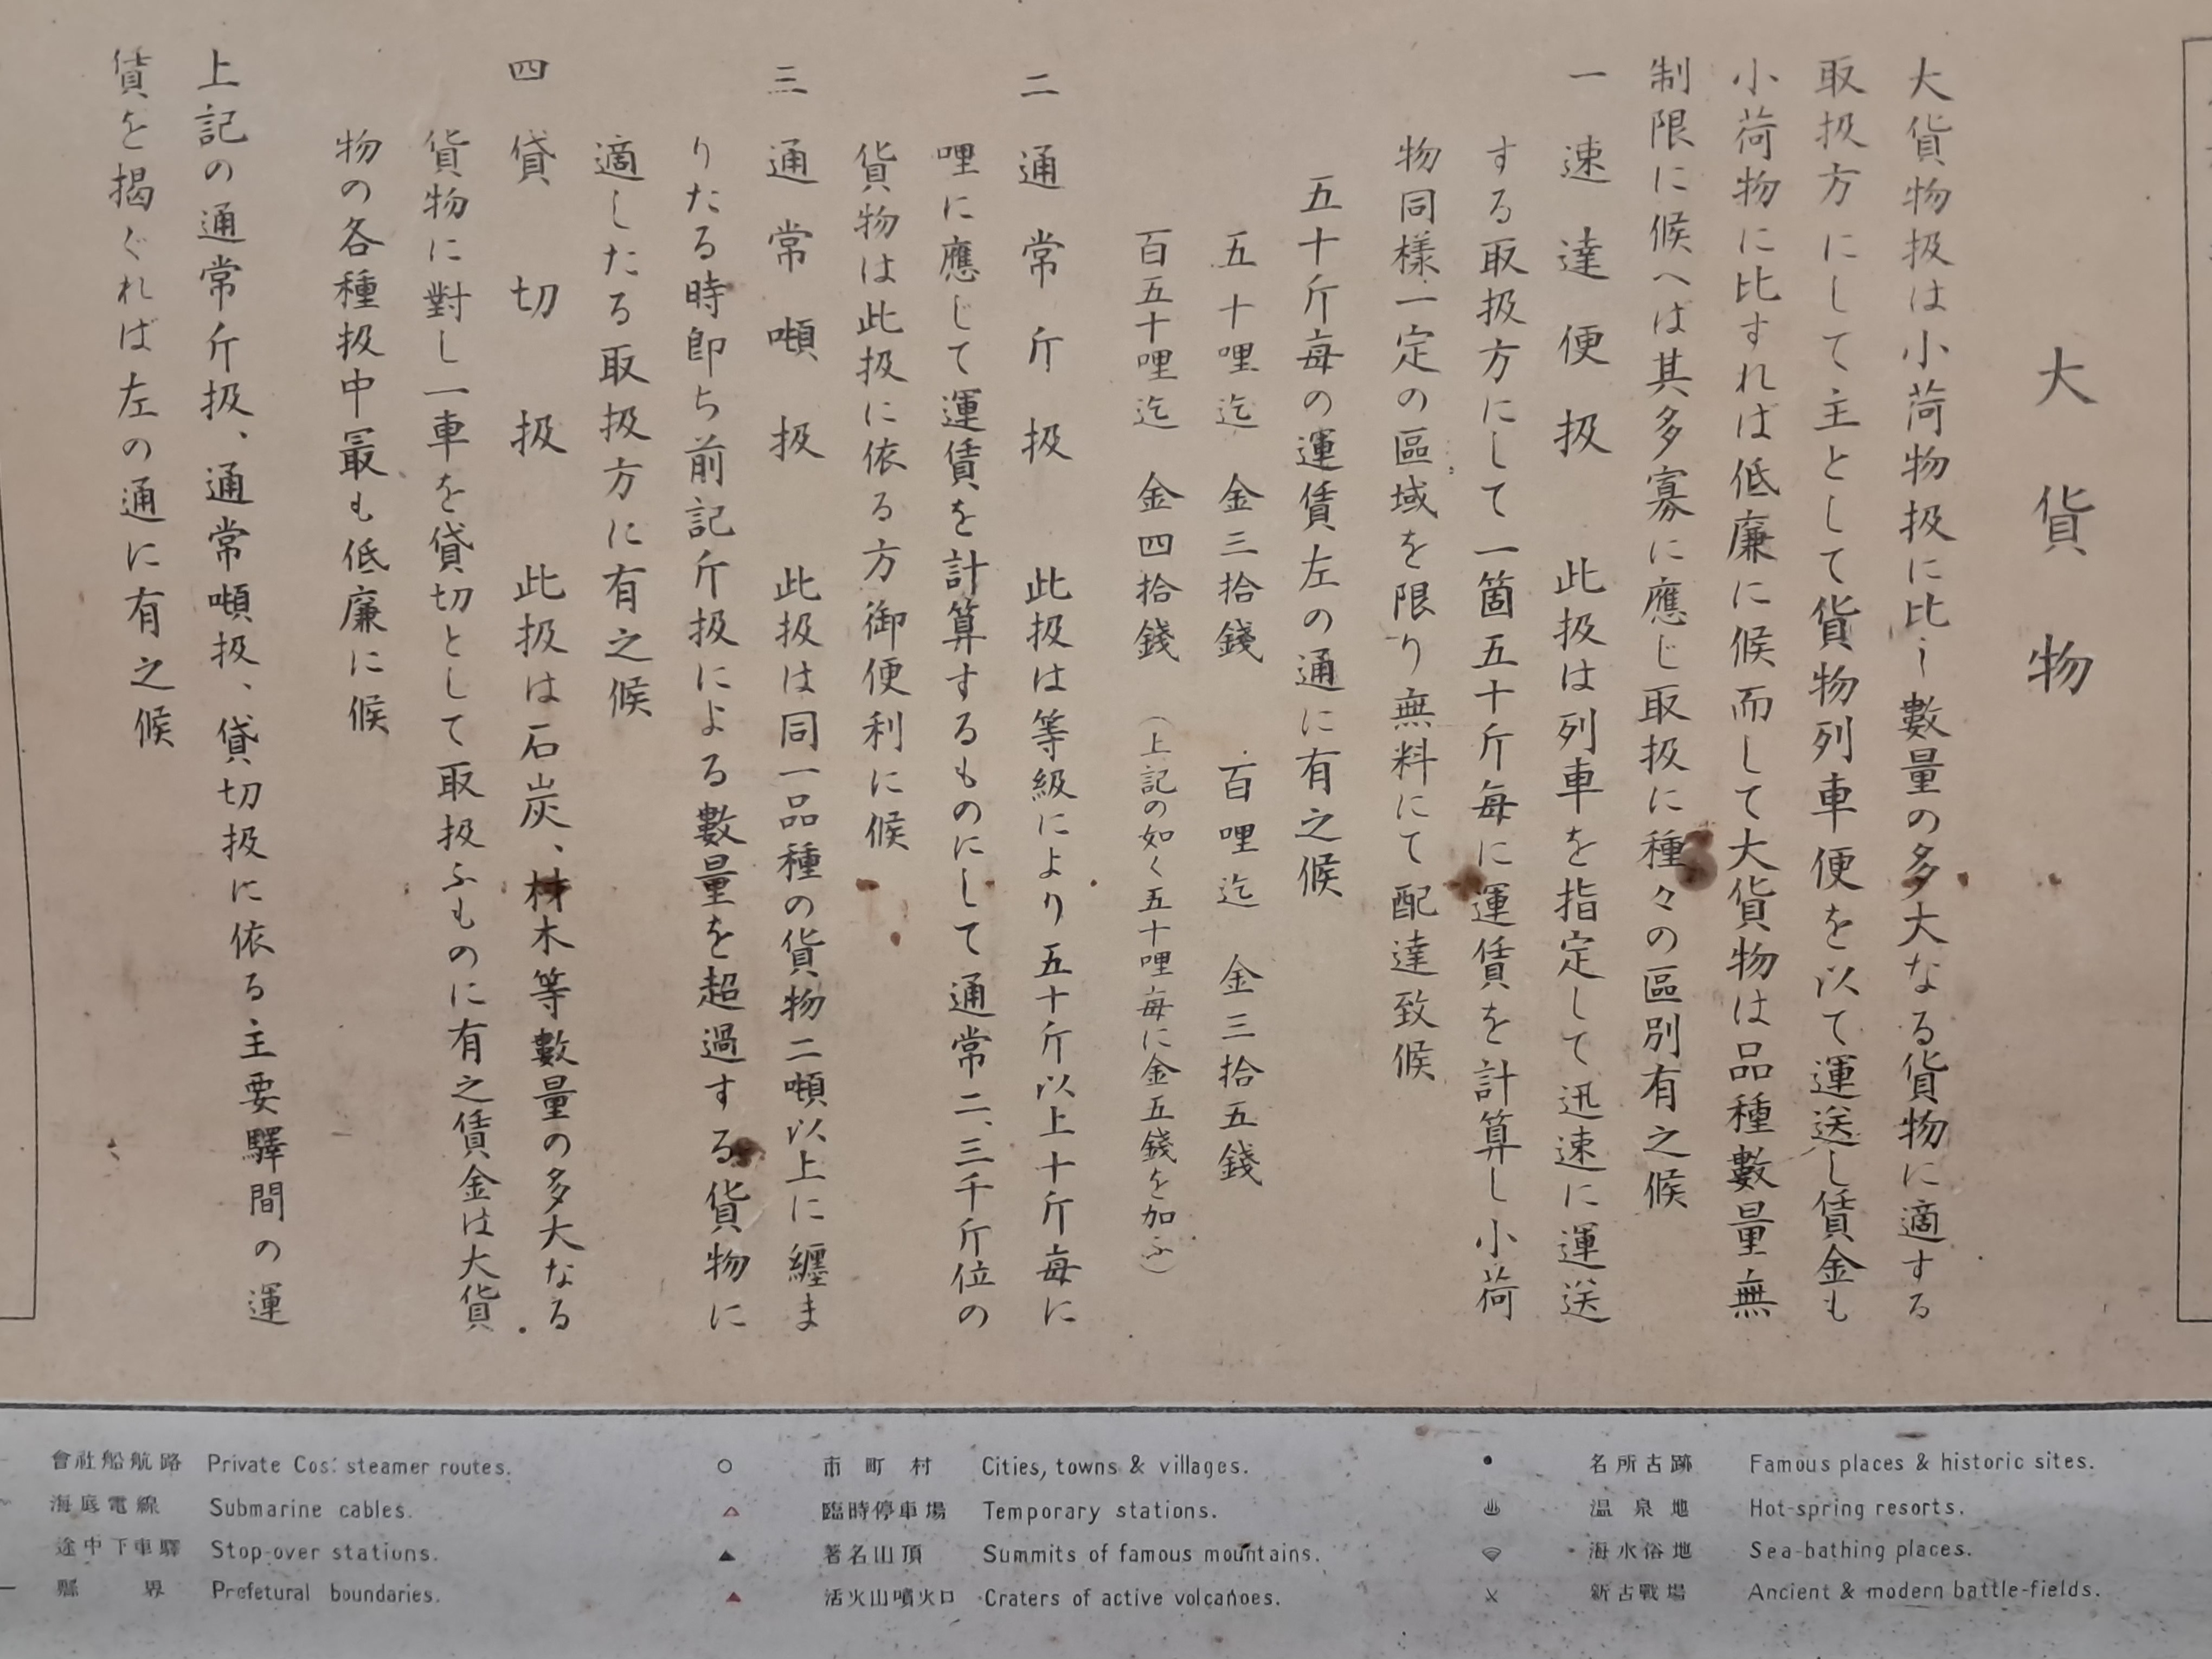 大貨物
大貨物扱は小荷物扱に比し數量の多大なる貨物に適する
取扱方にして主として貨物列車便を以て運送し賃金も
小荷物に比すれば低廉に候而して大貨物は品種數量無
制限に候へば其多寡に應じ取扱に種々の區別有之候
一 速達便扱 此扱は列車を指定して迅速に運送
する取扱方にして一箇五十斤每に運賃を計算し小荷
物同樣一定の區域を限り無料にて配達致候
五十斤每の運賃左の通に有之候
五十哩迄 金三拾錢 百哩迄 金三拾五錢
百五十哩迄 金四拾錢 (上記の如く五十哩每に金五錢を加ふ)
二 通常斤扱 此扱は等級により五十斤以上十斤每に
哩に應じて運賃を計算するものにして通常二、三千斤位の
貨物は此扱に依る方御便利に候
三 通常噸扱 此扱は同一品種の貨物二噸以上に纏ま
りたる時卽ち前記斤扱による數量を超過する貨物に
適したる取扱方に有之候
四 貸切扱 此扱は石炭、材木等數量の多大なる
貨物に對し一車を貸切として取扱ふものに有之賃金は大貨
物の各種扱中最も低廉に候
上記の通常斤扱、通常噸扱、貸切扱に依る主要驛間の運
賃を揭ぐれば左の通に有之候
會社船航路 Private Cos: steamer routes.
海底電線 Submarine cables.
途中下車驛 Stop-over stations.
縣界 Prefetural boundaries.
市町村 Cities, towns & villages.
臨時停車場 Temporary stations.
著名山頂 Summits of famous mountains.
活火山噴火口 Craters of active volcanoes.
名所古跡 Famous places & historic sites.
温泉地 Hot-spring resorts.
海水俗地 Sea-bathing places.
新古戰場 Ancient & modern battle-fields.